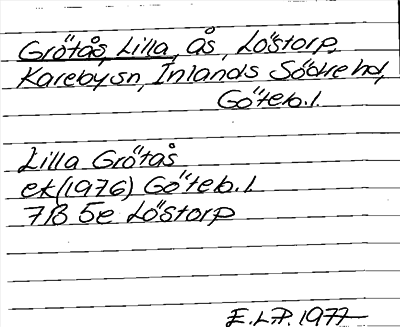 Grötås, Lilla, ås, Löstorp,
Karebysn, Inlands Södre hd,
Göteb.l.
Lilla Grötås
ek(1976) Göteb.l
7B 5e Löstorp
E.L.P. 1977